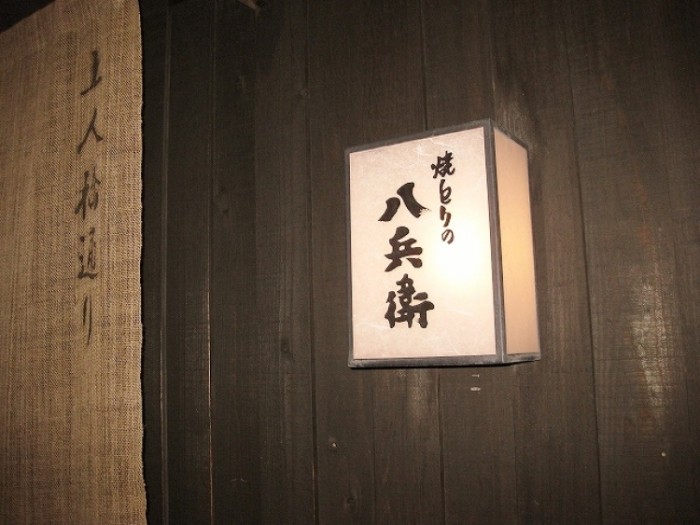 焼とりの
八兵衛
上人橋通り